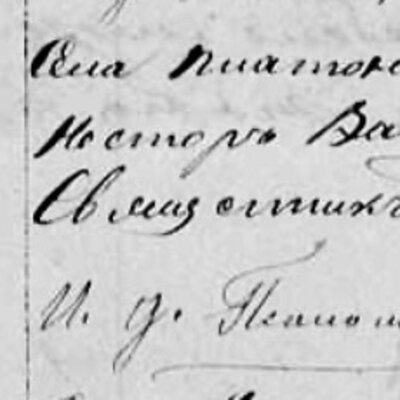 Села Платон
Несторъ Ва
Священникъ
И. д. Псалом